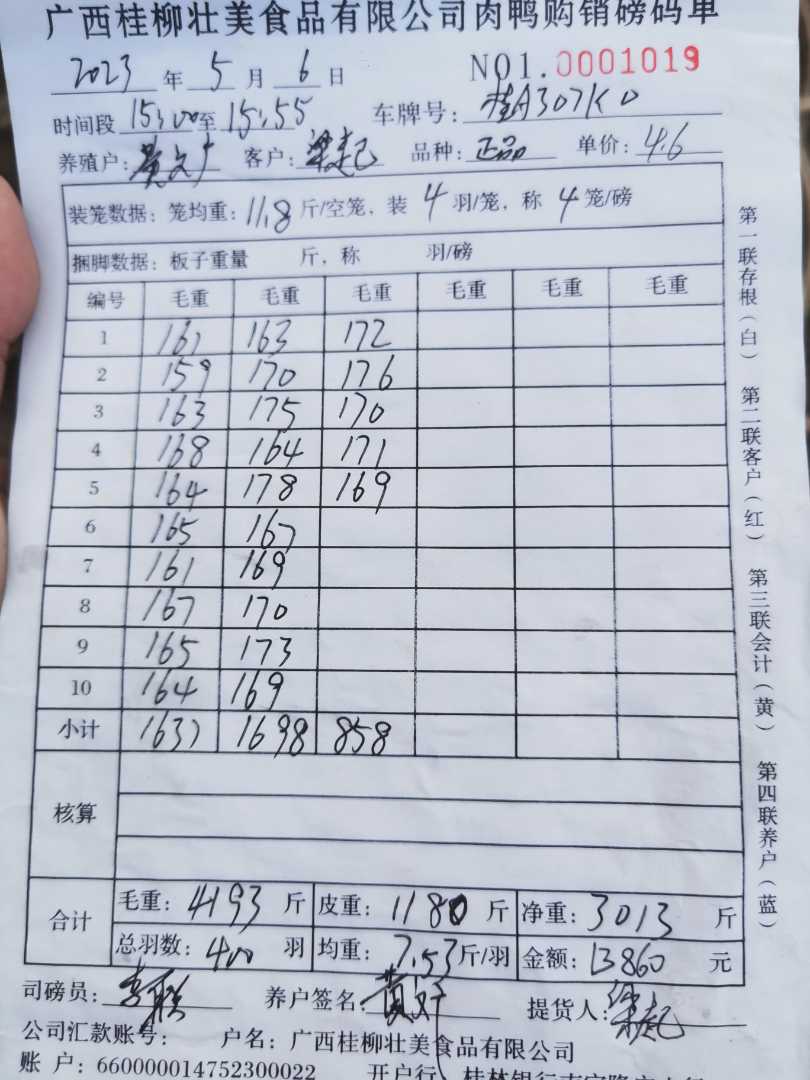 广西桂柳壮美食品有限公司肉鸭购销磅码单
2023年5月6日 NO1.0001019
时间段15:00至15:55 车牌号:桂A307K0
养殖户: 客户:梁起 品种:正品 单价:4.6
装笼数据:笼均重:11.8斤/空笼,装4羽/笼,称4笼/磅
捆脚数据:板子重量 斤,称 羽/磅
编号 毛重 毛重 毛重 毛重 毛重 毛重
1 161 163 172
2 159 170 176
3 163 175 170
4 168 164 171
5 164 178 169
6 165 167
7 161 169
8 167 170
9 165 173
10 164 169
小计 1637 1698 858
核算
合计 毛重:4193斤 皮重:1180斤 净重:3013斤
总羽数:400羽 均重:7.53斤/羽 金额:13860元
司磅员: 养户签名: 提货人:梁起
公司汇款账号: 户名:广西桂柳壮美食品有限公司
账 户:660000014752300022 开户行 桂林银行南宁隆安
第一联存根(白) 第二联客户(红) 第三联会计(黄) 第四联养户(蓝)